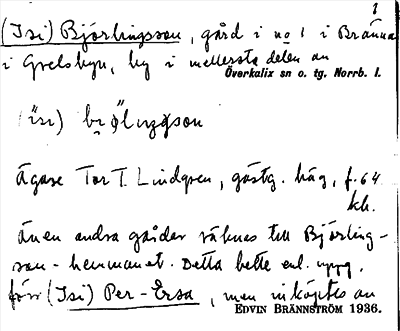 1
(Isi) Björlingson, gård i no 1 i Bränna
i Grelsbyn, by i mellersta delen av
Överkalix sn o. tg. Norrb. l.
Ägare Tor T. Lindgren, gästg. häg, f. 64
kh.
även andra gårdar räknas till Björling-
son-hemmanet. Detta hette enl. uppg.
förr (Isi) Per-Ersa, men inköptes av
EDVIN BRÄNNSTRÖM 1936.